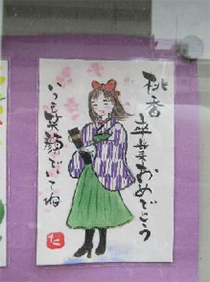 桃香
卒業おめでとう
いつも笑顔でいてね